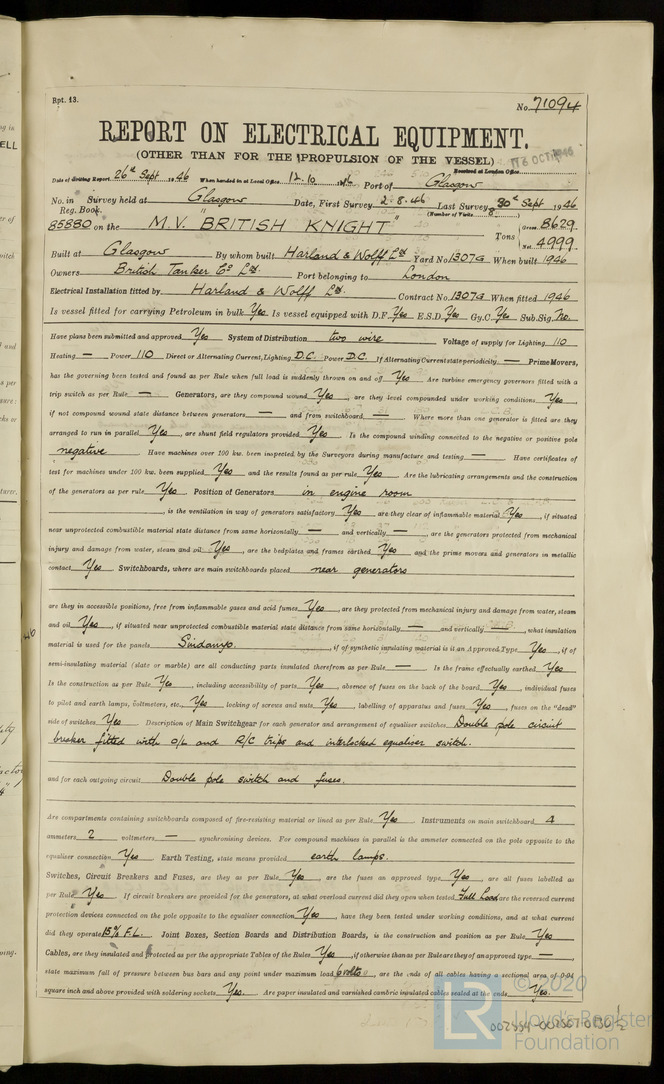 Rpt. 13.
No. 71094
REPORT ON ELECTRICAL EQUIPMENT.
(OTHER THAN FOR THE PROPULSION OF THE VESSEL)
16 OCT 1946
Received at London Office
Date of Writing Report 26th Sept 1946 When handed in at Local Office 12.10 1946 Port of Glasgow
No. in Survey held at Glasgow Date, First Survey 2.8.46 Last Survey 30th Sept 1946
Reg. Book. (Number of Visits 8)
85880 on the M.V. "BRITISH KNIGHT" Tons Gross 8629 Net 4999
Built at Glasgow By whom built Harland & Wolff Ltd. Yard No. 1307G When built 1946
Owners British Tanker Co Ltd. Port belonging to London
Electrical Installation fitted by Harland & Wolff Ltd. Contract No. 1307G When fitted 1946
Is vessel fitted for carrying Petroleum in bulk Yes Is vessel equipped with D.F. Yes E.S.D. Yes Gy.C. Yes Sub.Sig. No.
Have plans been submitted and approved Yes System of Distribution two wire Voltage of supply for Lighting 110
Heating — Power 110 Direct or Alternating Current, Lighting D.C. Power D.C. If Alternating Current state periodicity — Prime Movers,
has the governing been tested and found as per Rule when full load is suddenly thrown on and off Yes Are turbine emergency governors fitted with a
trip switch as per Rule — Generators, are they compound wound Yes, are they level compounded under working conditions Yes,
if not compound wound state distance between generators — and from switchboard — Where more than one generator is fitted are they
arranged to run in parallel Yes, are shunt field regulators provided Yes Is the compound winding connected to the negative or positive pole
negative Have machines over 100 kw. been inspected by the Surveyors during manufacture and testing — Have certificates of
test for machines under 100 kw. been supplied Yes and the results found as per rule Yes Are the lubricating arrangements and the construction
of the generators as per rule Yes Position of Generators in engine room
, is the ventilation in way of generators satisfactory Yes are they clear of inflammable material Yes, if situated
near unprotected combustible material state distance from same horizontally — and vertically —, are the generators protected from mechanical
injury and damage from water, steam and oil Yes, are the bedplates and frames earthed Yes and the prime movers and generators in metallic
contact Yes Switchboards, where are main switchboards placed near generators
are they in accessible positions, free from inflammable gases and acid fumes Yes, are they protected from mechanical injury and damage from water, steam
and oil Yes, if situated near unprotected combustible material state distance from same horizontally — and vertically —, what insulation
material is used for the panels Sindanyo, if of synthetic insulating material is it an Approved Type Yes, if of
semi-insulating material (slate or marble) are all conducting parts insulated therefrom as per Rule — Is the frame effectually earthed Yes
Is the construction as per Rule Yes, including accessibility of parts Yes, absence of fuses on the back of the board Yes, individual fuses
to pilot and earth lamps, voltmeters, etc., Yes locking of screws and nuts Yes, labelling of apparatus and fuses Yes, fuses on the "dead"
side of switches Yes Description of Main Switchgear for each generator and arrangement of equaliser switches Double pole circuit
breaker fitted with O/L and R/C trips and interlocked equaliser switch.
and for each outgoing circuit Double pole switch and fuses.
Are compartments containing switchboards composed of fire-resisting material or lined as per Rule Yes Instruments on main switchboard 4
ammeters 2 voltmeters — synchronising devices. For compound machines in parallel is the ammeter connected on the pole opposite to the
equaliser connection Yes Earth Testing, state means provided earth lamps.
Switches, Circuit Breakers and Fuses, are they as per Rule Yes, are the fuses an approved type Yes, are all fuses labelled as
per Rule Yes If circuit breakers are provided for the generators, at what overload current did they open when tested Full Load are the reversed current
protection devices connected on the pole opposite to the equaliser connection Yes, have they been tested under working conditions, and at what current
did they operate 15% F.L. Joint Boxes, Section Boards and Distribution Boards, is the construction and position as per Rule Yes
Cables, are they insulated and protected as per the appropriate Tables of the Rules Yes, if otherwise than as per Rule are they of an approved type —,
state maximum fall of pressure between bus bars and any point under maximum load 6 volts, are the ends of all cables having a sectional area of 0.04
square inch and above provided with soldering sockets Yes. Are paper insulated and varnished cambric insulated cables sealed at the ends Yes.
© 2020
LR
Lloyd's Register
Foundation